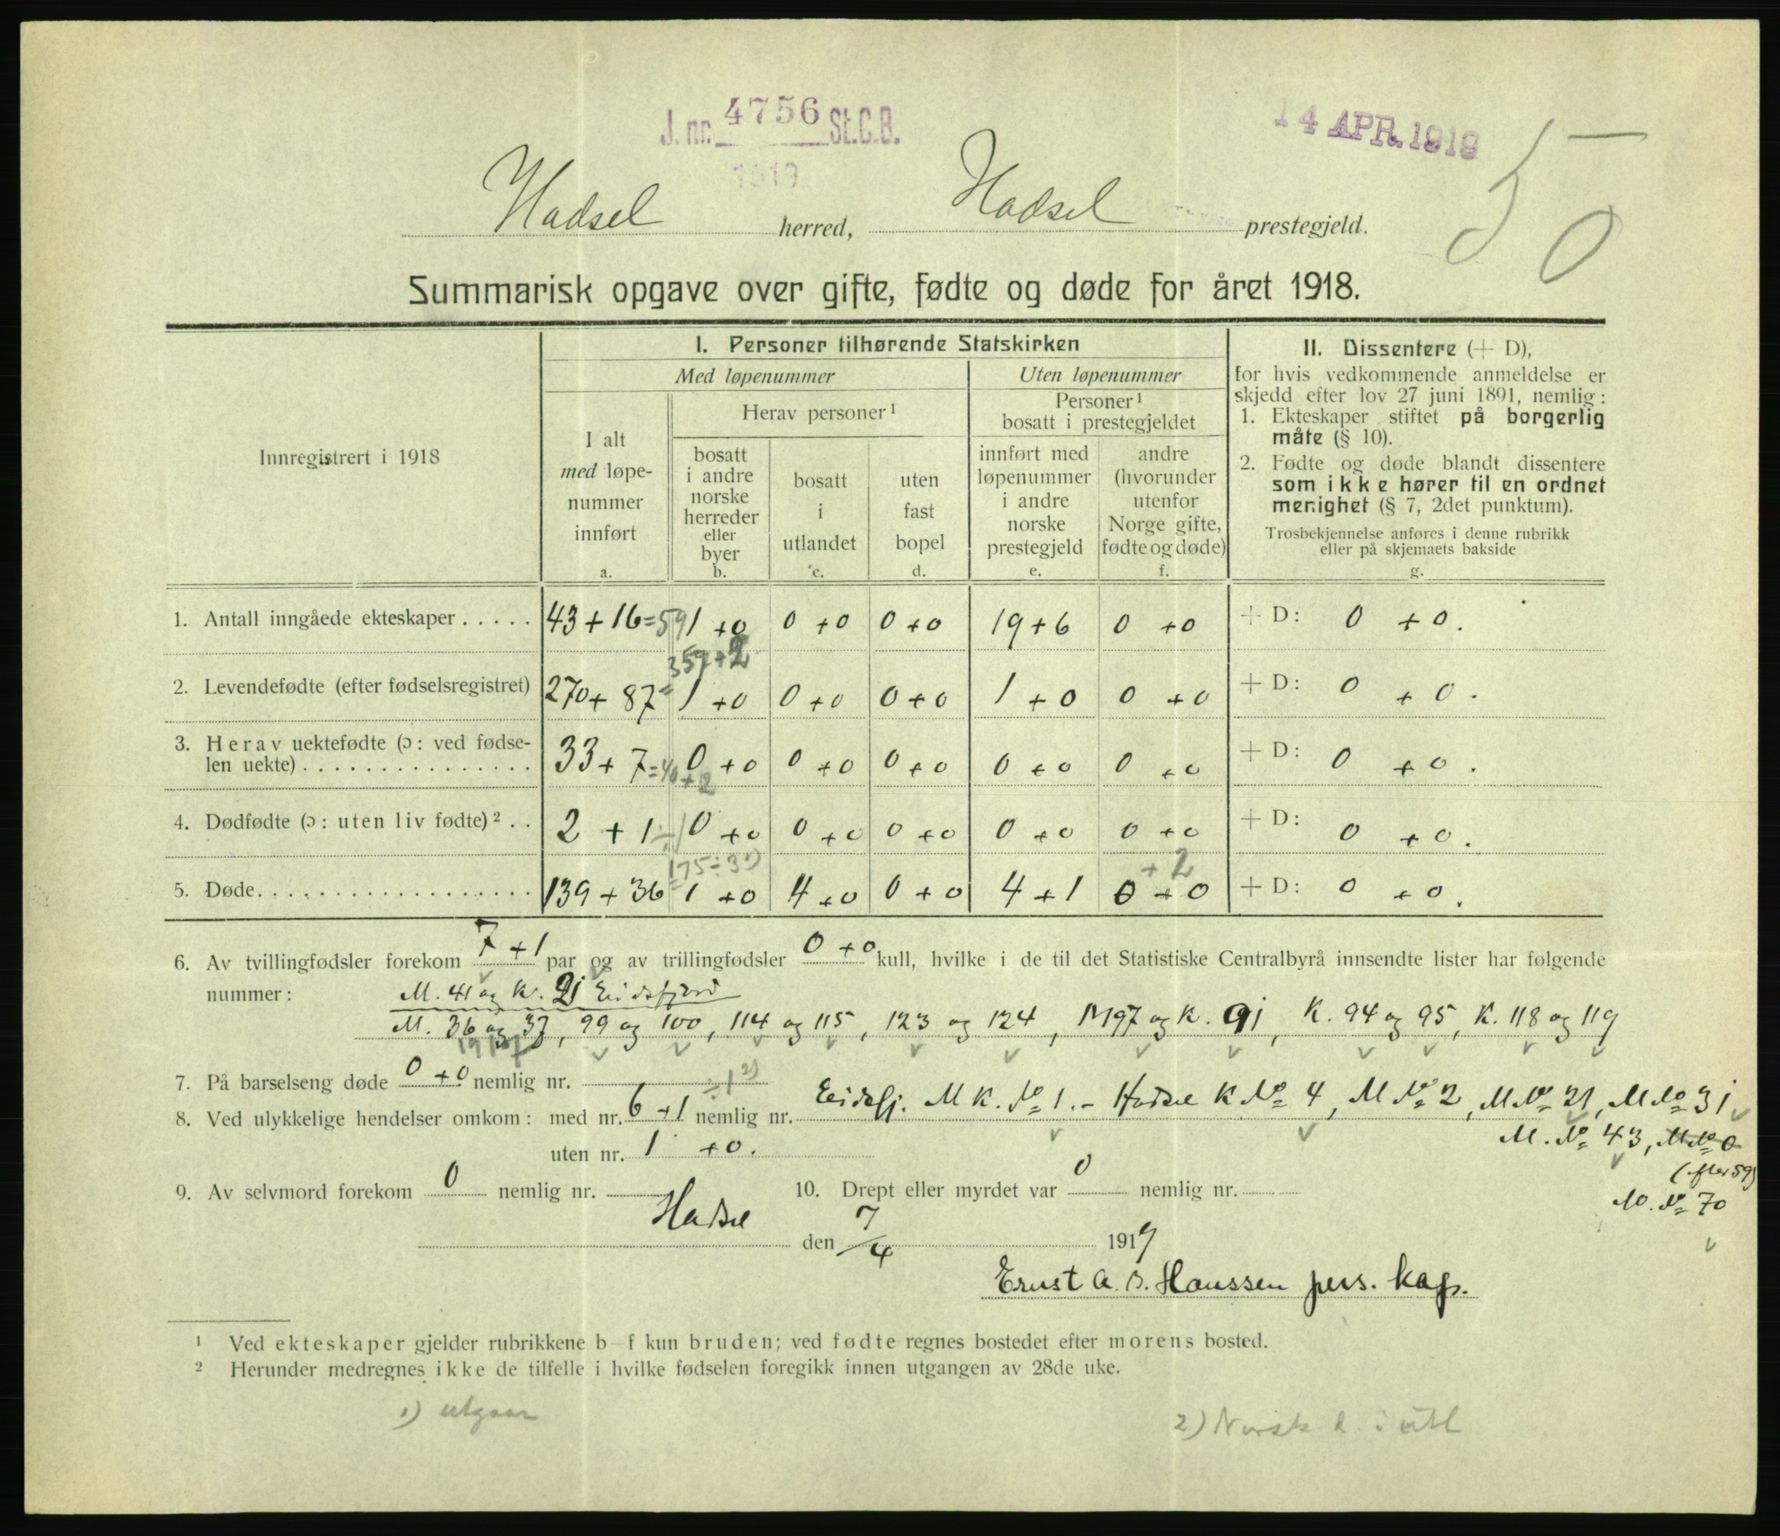 J. nr. 4756 St.C.B.
1919
14 APR. 1919
50
Hadsel herred, Hadsel prestegjeld.
Summarisk opgave over gifte, fødte og døde for året 1918.
Innregistrert i 1918
I. Personer tilhørende Statskirken
Med løpenummer
Uten løpenummer
I alt
med løpe-
nummer
innført
a.
Herav personer ¹
bosatt
i andre
norske
herreder
eller
byer
b.
bosatt
i
utlandet
c.
uten
fast
bopel
d.
Personer ¹
bosatt i prestegjeldet
innført med
løpenummer
i andre
norske
prestegjeld
e.
andre
(hvorunder
utenfor
Norge gifte,
fødte og døde)
f.
II. Dissentere (+ D),
for hvis vedkommende anmeldelse er
skjedd efter lov 27 juni 1891, nemlig:
1. Ekteskaper stiftet på borgerlig
måte (§ 10).
2. Fødte og døde blandt dissentere
som ikke hører til en ordnet
menighet (§ 7, 2det punktum).
Trosbekjennelse anføres i denne rubrikk
eller på skjemaets bakside
g.
1. Antall inngåede ekteskaper ..... 43 + 16 = 59 1 + 0 0 + 0 0 + 0 19 + 6 0 + 0 + D: 0 + 0.
359 + 2
2. Levendefødte (efter fødselsregistret) 270 + 87 = 1 + 0 0 + 0 0 + 0 1 + 0 0 + 0 + D: 0 + 0.
3. Herav uektefødte (ɔ: ved fødse-
len uekte) ............... 33 + 7 = 40 + 2 0 + 0 0 + 0 0 + 0 0 + 0 0 + 0 + D: 0 + 0.
4. Dødfødte (ɔ: uten liv fødte) ² .. 2 + 1 ÷ 1 0 + 0 0 + 0 0 + 0 0 + 0 0 + 0 + D: 0 + 0.
= 175 ÷ 3 ¹) + 2
5. Døde. ................. 139 + 36 1 + 0 4 + 0 0 + 0 4 + 1 0 + 0 + D: 0 + 0.
6. Av tvillingfødsler forekom 7 + 1 par og av trillingfødsler 0 + 0 kull, hvilke i de til det Statistiske Centralbyrå innsendte lister har følgende
nummer: M. 41 og K. 21 Eidsfjord
M. 36 og 37, 99 og 100, 114 og 115, 123 og 124, M 97 og K. 91, K. 94 og 95, K. 118 og 119
7. På barselseng døde 0 + 0 nemlig nr. ÷ 1 ²)
8. Ved ulykkelige hendelser omkom: med nr. 6 + 1 nemlig nr. Eidsfj. M K. № 1. – Hadsel K № 4, M № 2, M № 21, M № 31
M. № 43, M № 0
(efter 59)
uten nr. 1 + 0.
M. № 70
9. Av selvmord forekom 0 nemlig nr. 10. Drept eller myrdet var 0 nemlig nr.
Hadsel den 7/4 1919
Ernst A. B. Hanssen pers. kap.
¹ Ved ekteskaper gjelder rubrikkene b–f kun bruden; ved fødte regnes bostedet efter morens bosted.
² Herunder medregnes ikke de tilfelle i hvilke fødselen foregikk innen utgangen av 28de uke.
1) utgaar
2) Norsk d. i utl